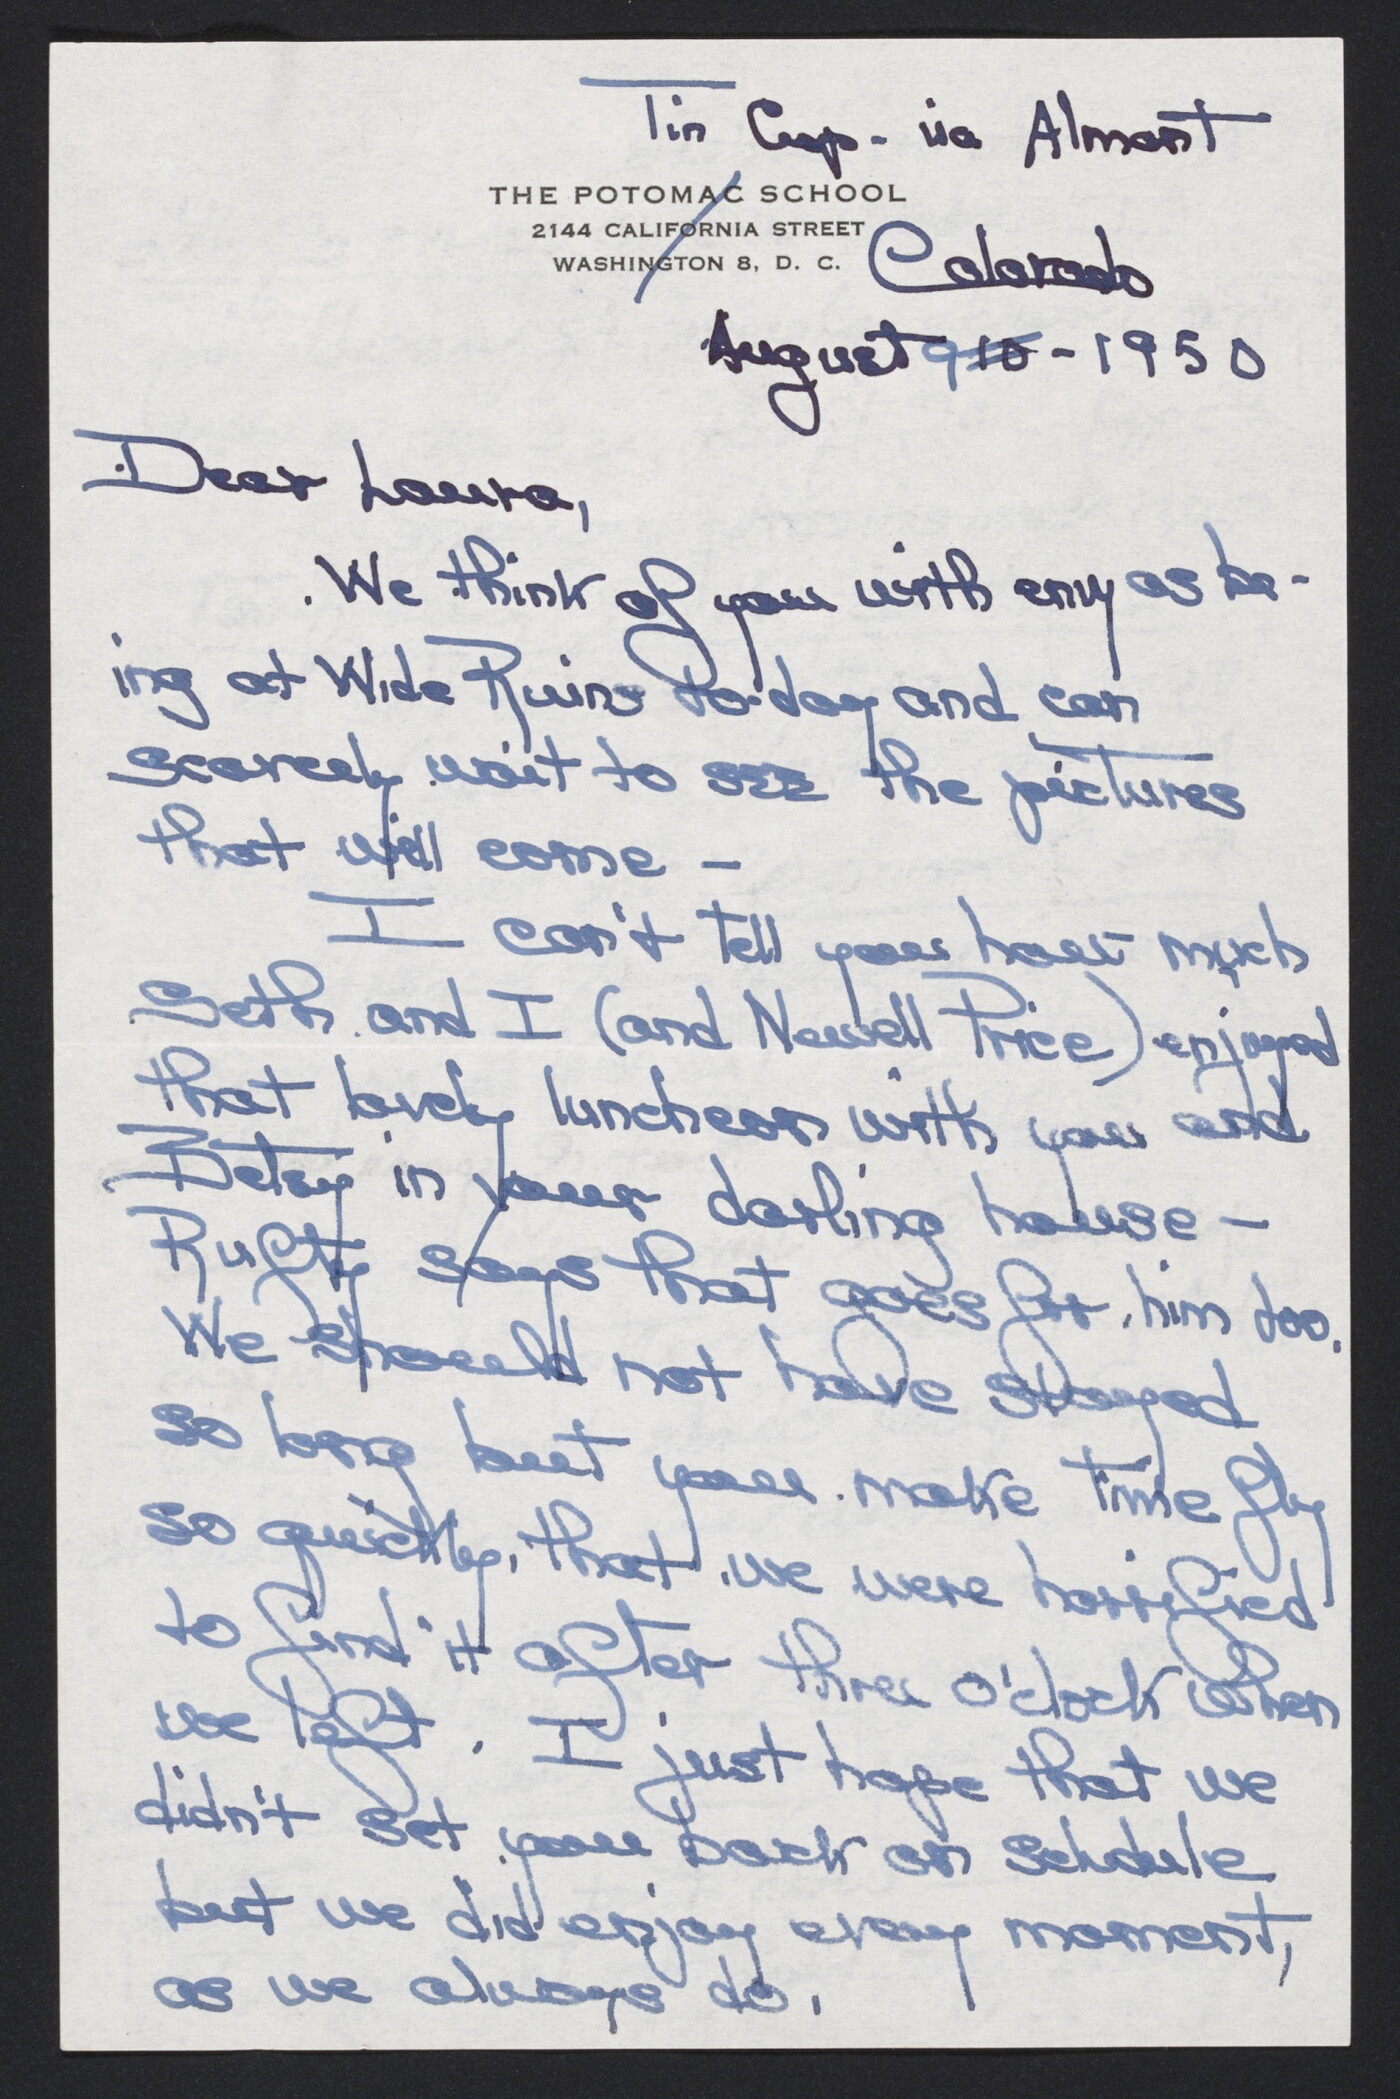 Tin Cup - via Almont
THE POTOMAC SCHOOL
2144 CALIFORNIA STREET
WASHINGTON 8, D. C.
Colorado
August 9 10 - 1950
Dear Laura,
We think of you with envy as be-
ing at Wide Ruins to-day and can
scarcely wait to see the pictures
that will come -
I can't tell you how much
Seth and I (and Newell Price) enjoyed
that lovely luncheon with you and
Betsy in your darling house -
Rufty says that goes for him too.
We should not have stayed
so long but you make time fly
so quickly, that we were horrified
to find it after three o'clock when
we left. I just hope that we
didn't set you back on schdule
but we did enjoy every moment,
as we always do.